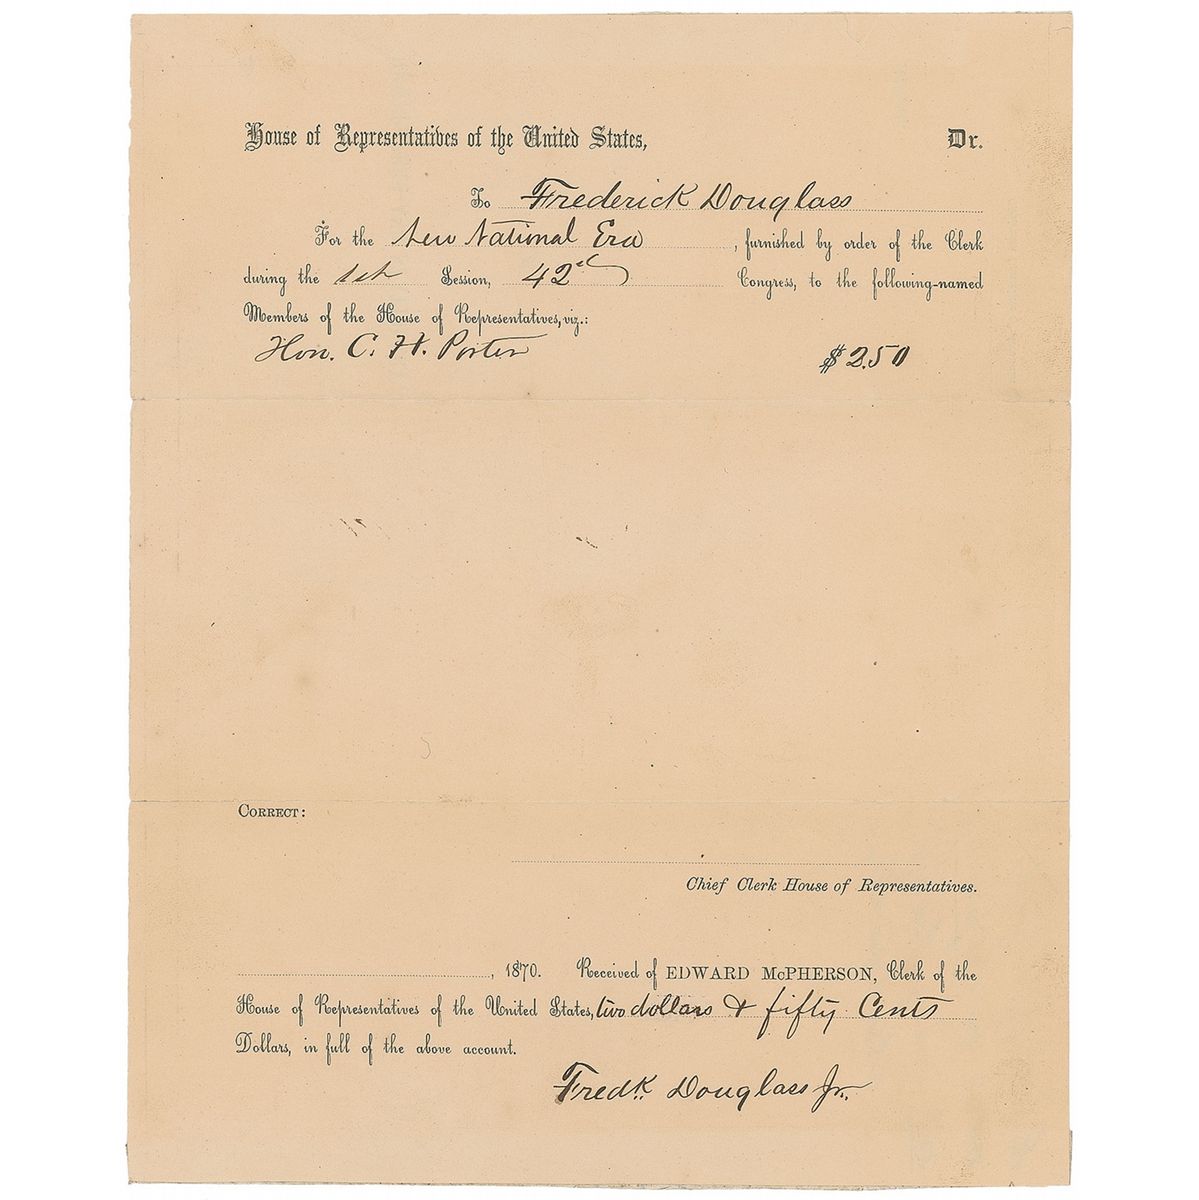 House of Representatives of the United States, Dr.
To Frederick Douglass
For the New National Era, furnished by order of the Clerk
during the 1st Session, 42d Congress, to the following-named
Members of the House of Representatives, viz.:
Hon. C. H. Porter $2.50
CORRECT:
Chief Clerk House of Representatives.
, 1870. Received of EDWARD McPHERSON, Clerk of the
House of Representatives of the United States, two dollars & fifty Cents
Dollars, in full of the above account.
Fredk. Douglass Jr.